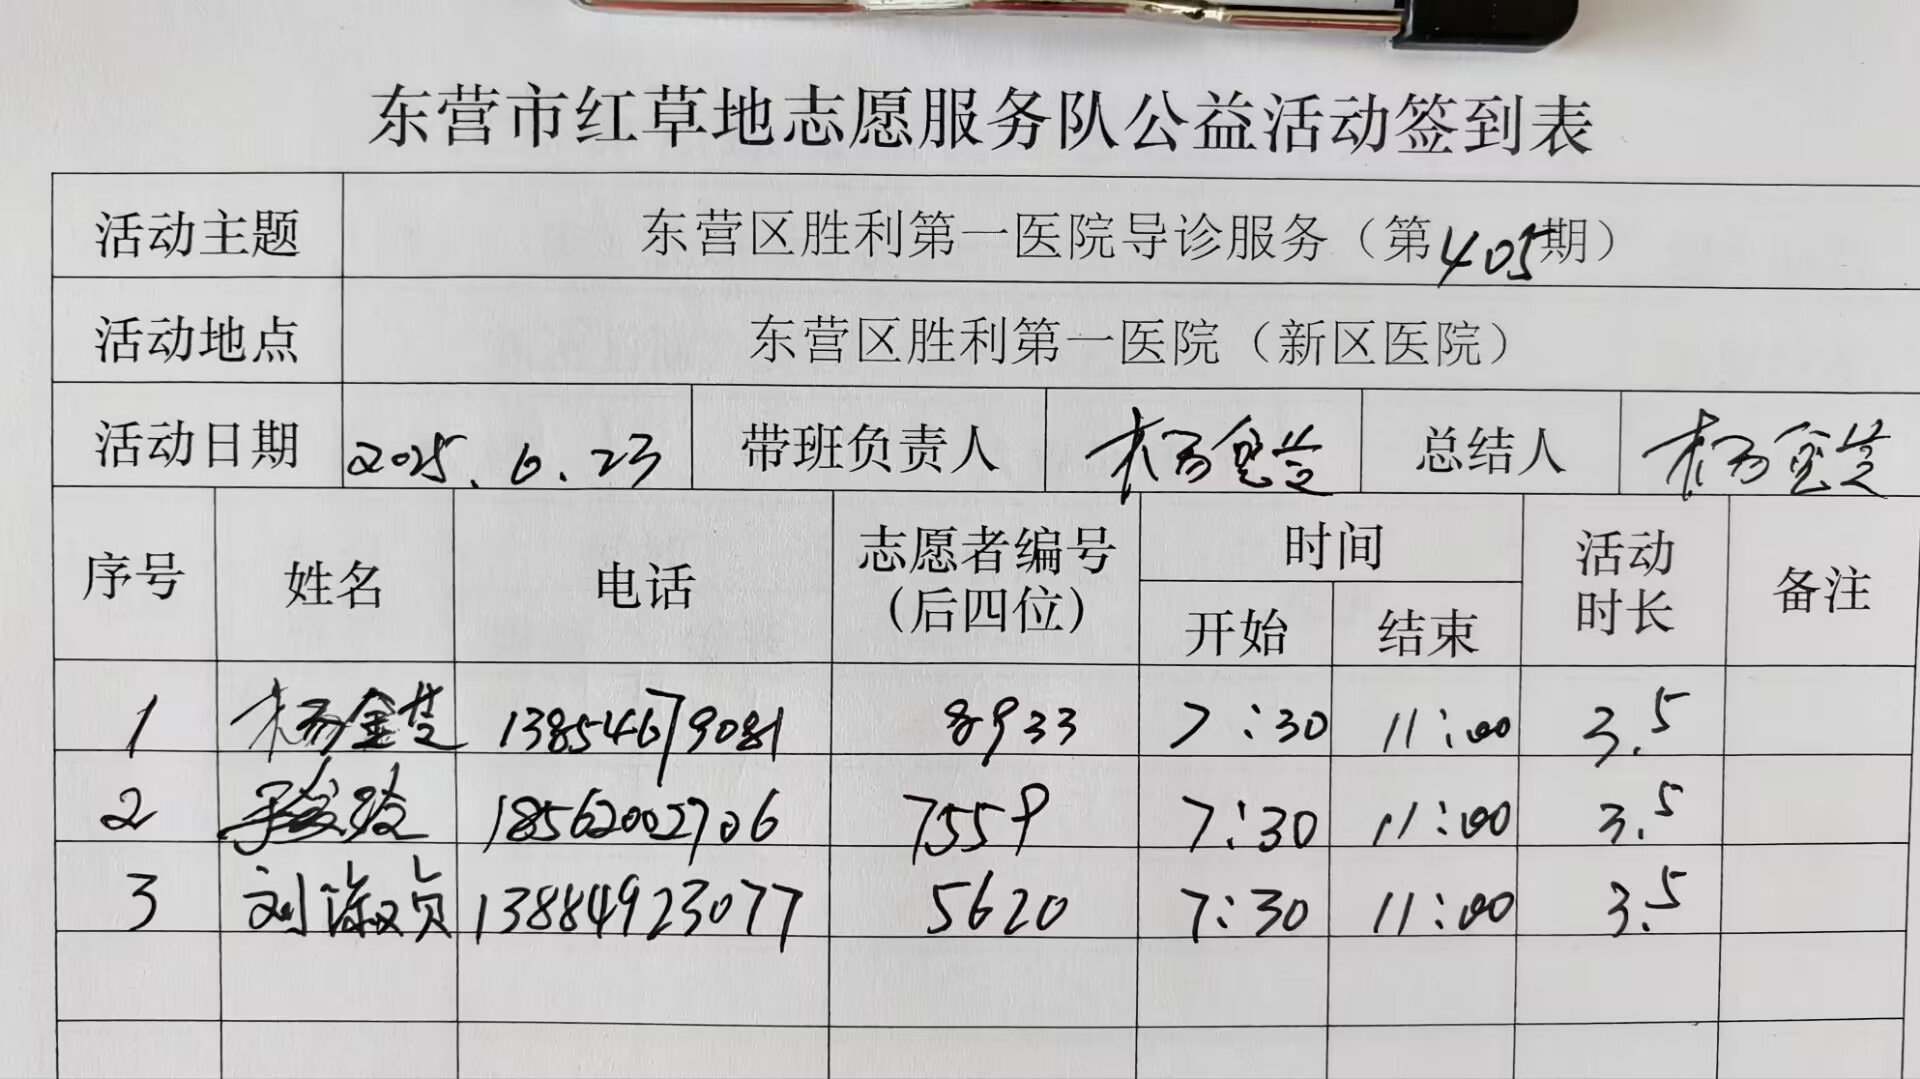 东营市红草地志愿服务队公益活动签到表
活动主题 东营区胜利第一医院导诊服务（第405期）
活动地点 东营区胜利第一医院（新区医院）
活动日期 2025.6.23 带班负责人 杨金芝 总结人 杨金芝
序号 姓名 电话 志愿者编号（后四位） 时间 开始 结束 活动时长 备注
1 杨金芝 13854679081 8933 7:30 11:00 3.5
2 18562002706 7559 7:30 11:00 3.5
3 刘 13884923077 5620 7:30 11:00 3.5